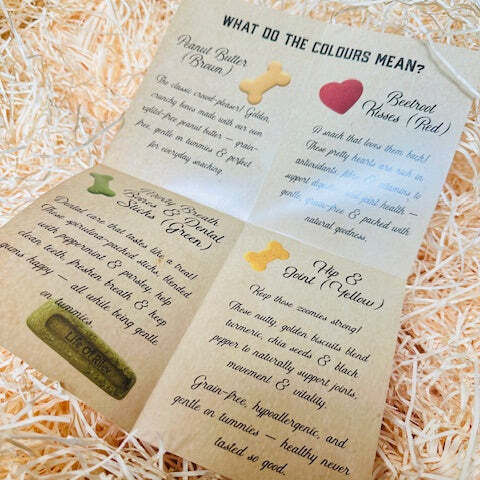 WHAT DO THE COLOURS MEAN?
Peanut Butter
(Brown)
The classic crowd-pleaser! Golden,
crunchy bones made with our own
xylitol-free peanut butter — grain-
free, gentle on tummies & perfect
for everyday snacking.
Beetroot
Kisses (Red)
A snack that loves them back!
These pretty hearts are rich in
antioxidants, vitamins to
support joint health —
gentle, grain-free & packed with
natural goodness.
Breath
Bones & Dental
Sticks (Green)
Dental care that tastes like a treat!
These spirulina-packed sticks, blended
with peppermint & parsley, help
clean teeth, freshen breath & keep
gums happy — all while being gentle
on tummies.
Hip &
Joint (Yellow)
Keep those zoomies strong!
These nutty, golden biscuits blend
turmeric, chia seeds & black
pepper to naturally support joints,
movement & vitality.
Grain-free, hypoallergenic, and
gentle on tummies — healthy never
tasted so good.